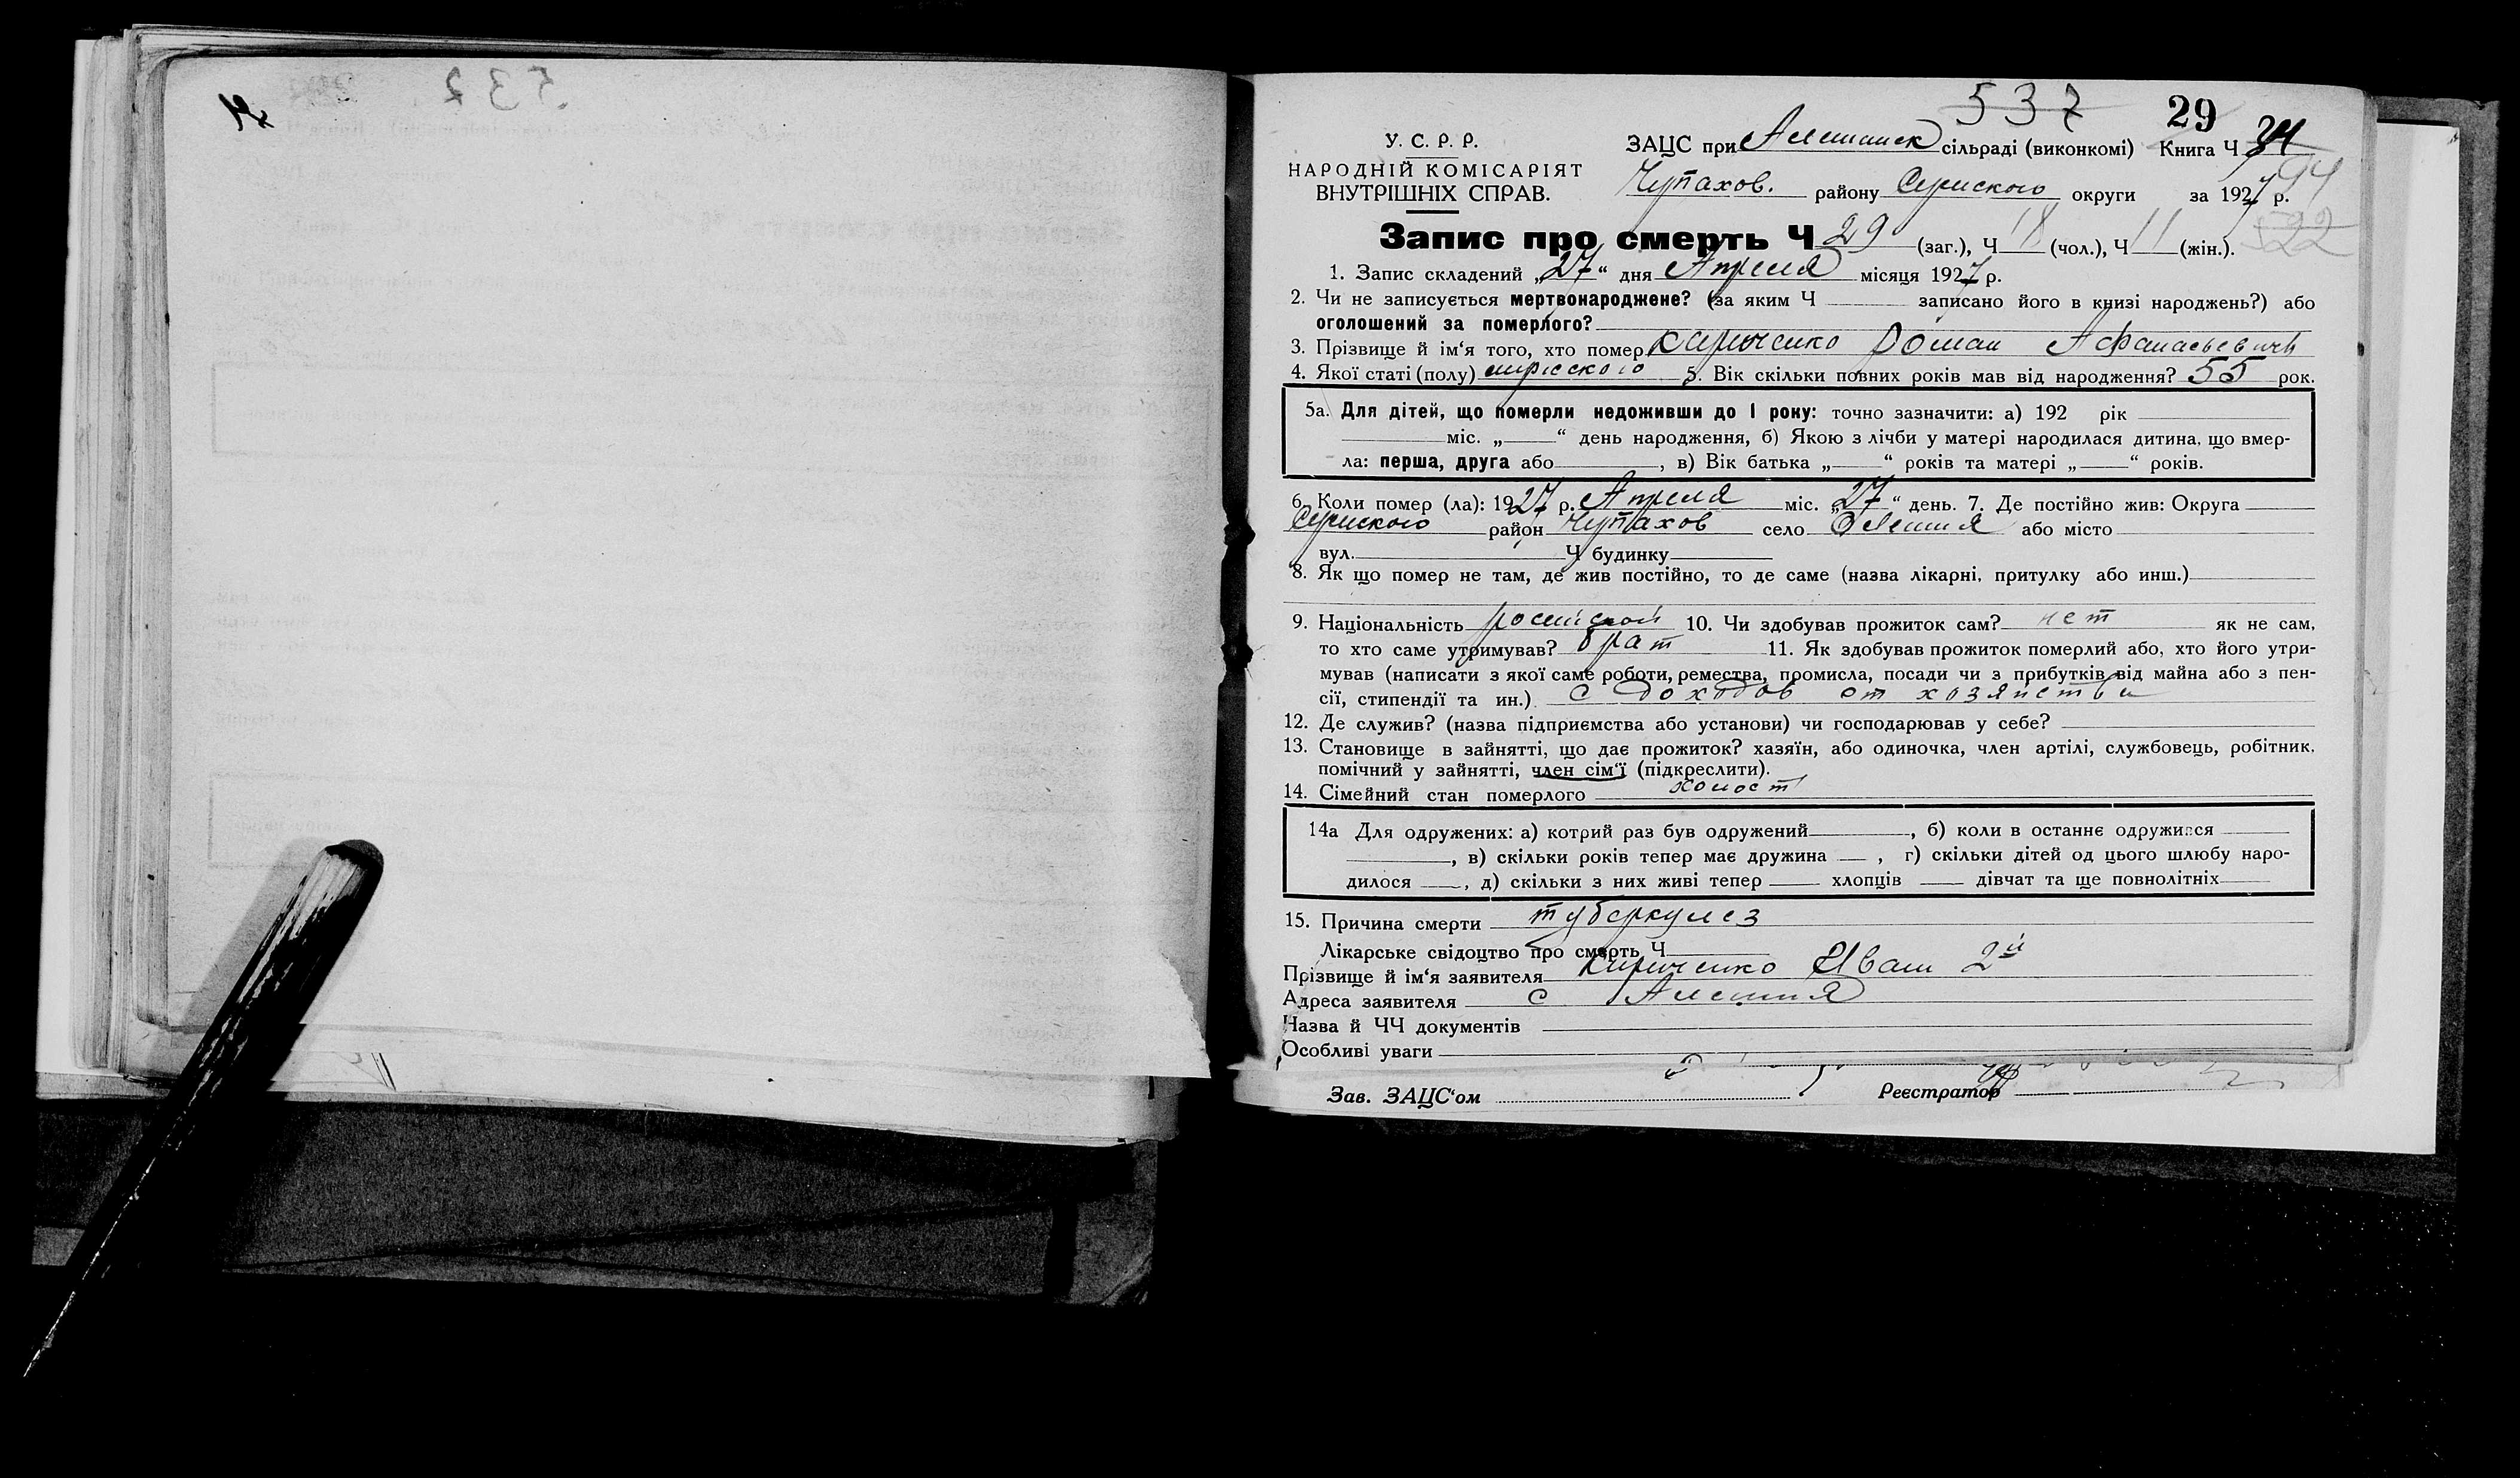 532
537 29
У. С. Р. Р.
НАРОДНІЙ КОМІСАРІЯТ
ВНУТРІШНІХ СПРАВ.
ЗАЦС при Алешанск сільраді (виконкомі) Книга Ч
Чупахов. району Сумского округи за 1927 р. 94
522
Запис про смерть Ч 29 (заг.), Ч 18 (чол.), Ч 11 (жін.).
1. Запис складений „27“ дня Апреля місяця 1927 р.
2. Чи не записується мертвонароджене? (за яким Ч записано його в книзі народжень?) або
оголошений за померлого?
3. Прізвище й ім‘я того, хто помер Кириченко Роман Афанасьевичь
4. Якої статі (полу) мужского 5. Вік скільки повних років мав від народження? 55 рок.
5а. Для дітей, що померли недоживши до 1 року: точно зазначити: а) 192 рік
міс. „ “ день народження, б) Якою з лічби у матері народилася дитина, що вмер-
ла: перша, друга або , в) Вік батька „ “ років та матері „ “ років.
6. Коли помер (ла): 1927 р. Апреля міс. „27“ день. 7. Де постійно жив: Округа
Сумского район Чупахов село Олешня або місто
вул. Ч будинку
8. Як що помер не там, де жив постійно, то де саме (назва лікарні, притулку або инш.)
9. Національність российской 10. Чи здобував прожиток сам? нет як не сам,
то хто саме утримував? брат 11. Як здобував прожиток померлий або, хто його утри-
мував (написати з якої саме роботи, ремества, промисла, посади чи з прибутків від майна або з пен-
сії, стипендії та ин.) с доходов от хозяйства
12. Де служив? (назва підприємства або установи) чи господарював у себе?
13. Становище в зайнятті, що дає прожиток? хазяїн, або одиночка, член артілі, службовець, робітник,
помічний у зайнятті, член сім‘ї (підкреслити).
14. Сімейний стан померлого холост
14а Для одружених: а) котрий раз був одружений , б) коли в останнє одружився
, в) скільки років тепер має дружина , г) скільки дітей од цього шлюбу наро-
дилося , д) скільки з них живі тепер хлопців дівчат та ще повнолітніх
15. Причина смерти туберкулез
Лікарське свідоцтво про смерть Ч
Прізвище й ім‘я заявителя Кириченко Иван 2й
Адреса заявителя с Алешня
Назва й ЧЧ документів
Особливі уваги
Зав. ЗАЦС‘ом Реєстратор